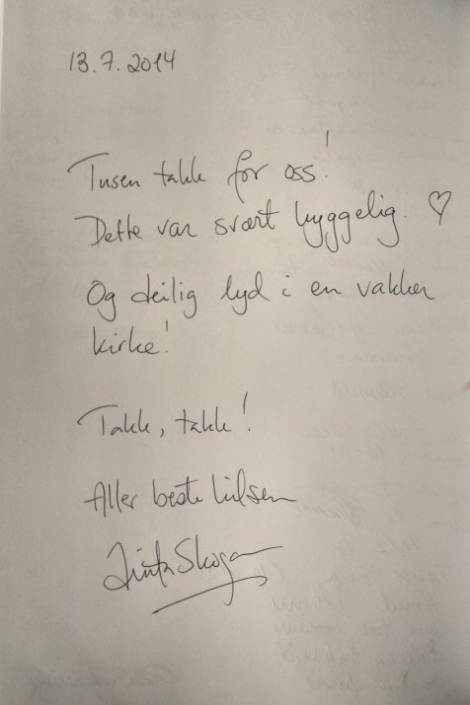 13.7.2014
Tusen takk for oss!
Dette var svært hyggelig. ♡
Og deilig lyd i en vakker
kirke!
Takk, takk!
Aller beste hilsen
Skogan